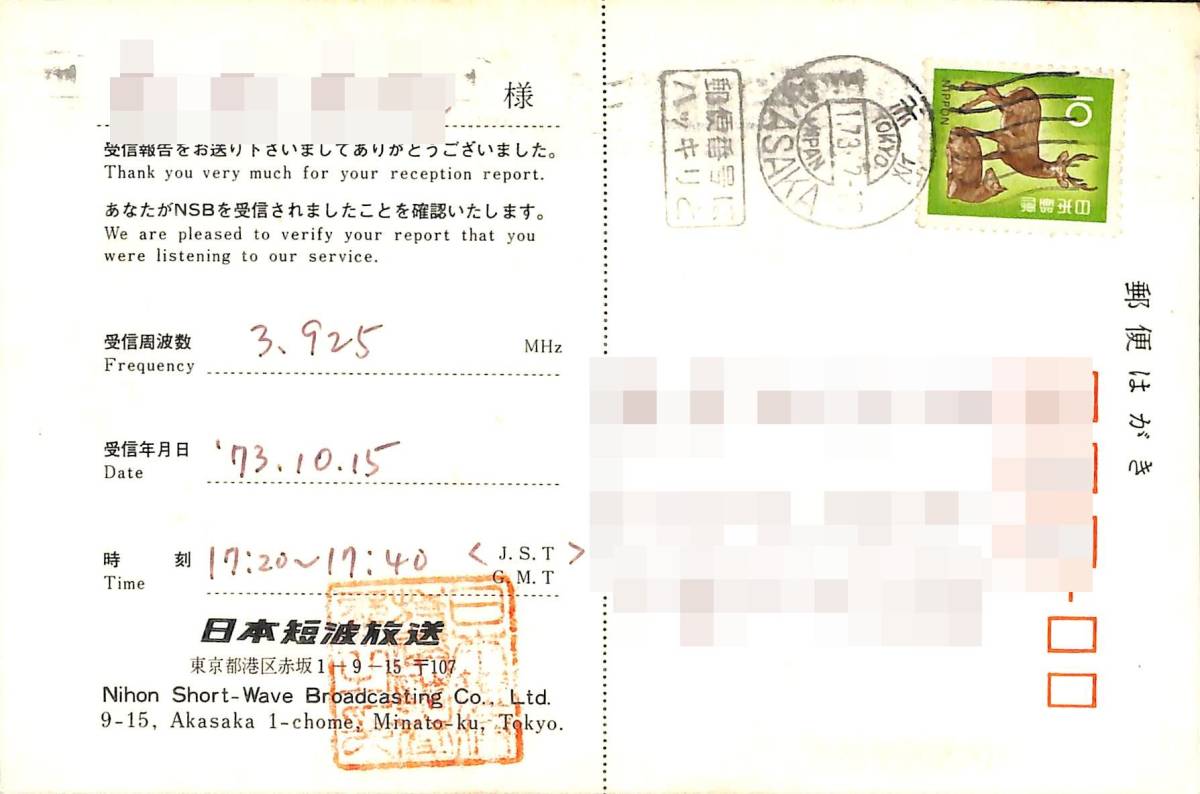 様
受信報告をお送り下さいましてありがとうございました。
Thank you very much for your reception report.
あなたがNSBを受信されましたことを確認いたします。
We are pleased to verify your report that you
were listening to our service.
受信周波数 3.925 MHz
Frequency
受信年月日 '73.10.15
Date
時刻 17:20～17:40 < J.S.T >
Time G.M.T
日本短波放送
東京都港区赤坂1-9-15 〒107
Nihon Short-Wave Broadcasting Co., Ltd.
9-15, Akasaka 1-chome, Minato-ku, Tokyo.
郵便番号に
ハッキリと
TOKYO
JAPAN
AKASAKA
NIPPON
10
日本郵便
郵便はがき